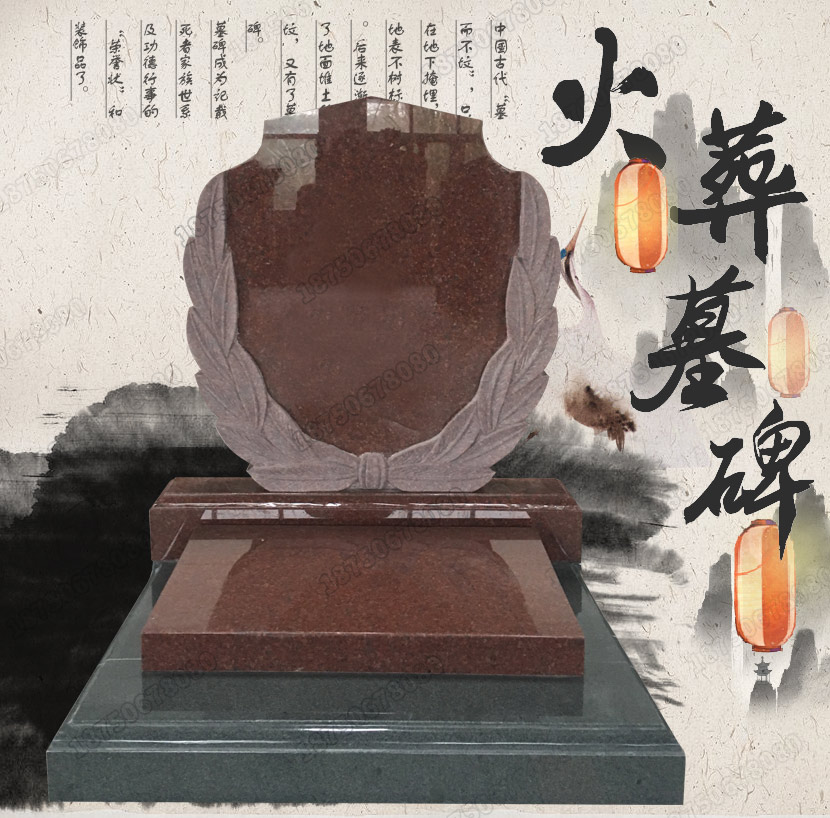 火葬墓碑
中国古代“墓
而不坟”，只
在地下掩埋，
地表不树标
。后来逐渐
了地面堆土
坟，又有了墓
碑。
墓碑成为记载
死者家族世系
及功德行事的
“荣誉状”和
装饰品了。
18750678080